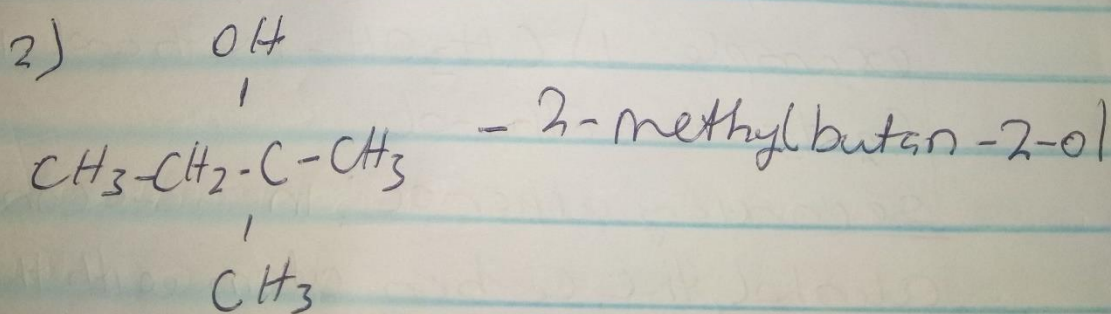 2)
OH
CH3-CH2-C-CH3 - 2-methylbutan-2-ol
CH3